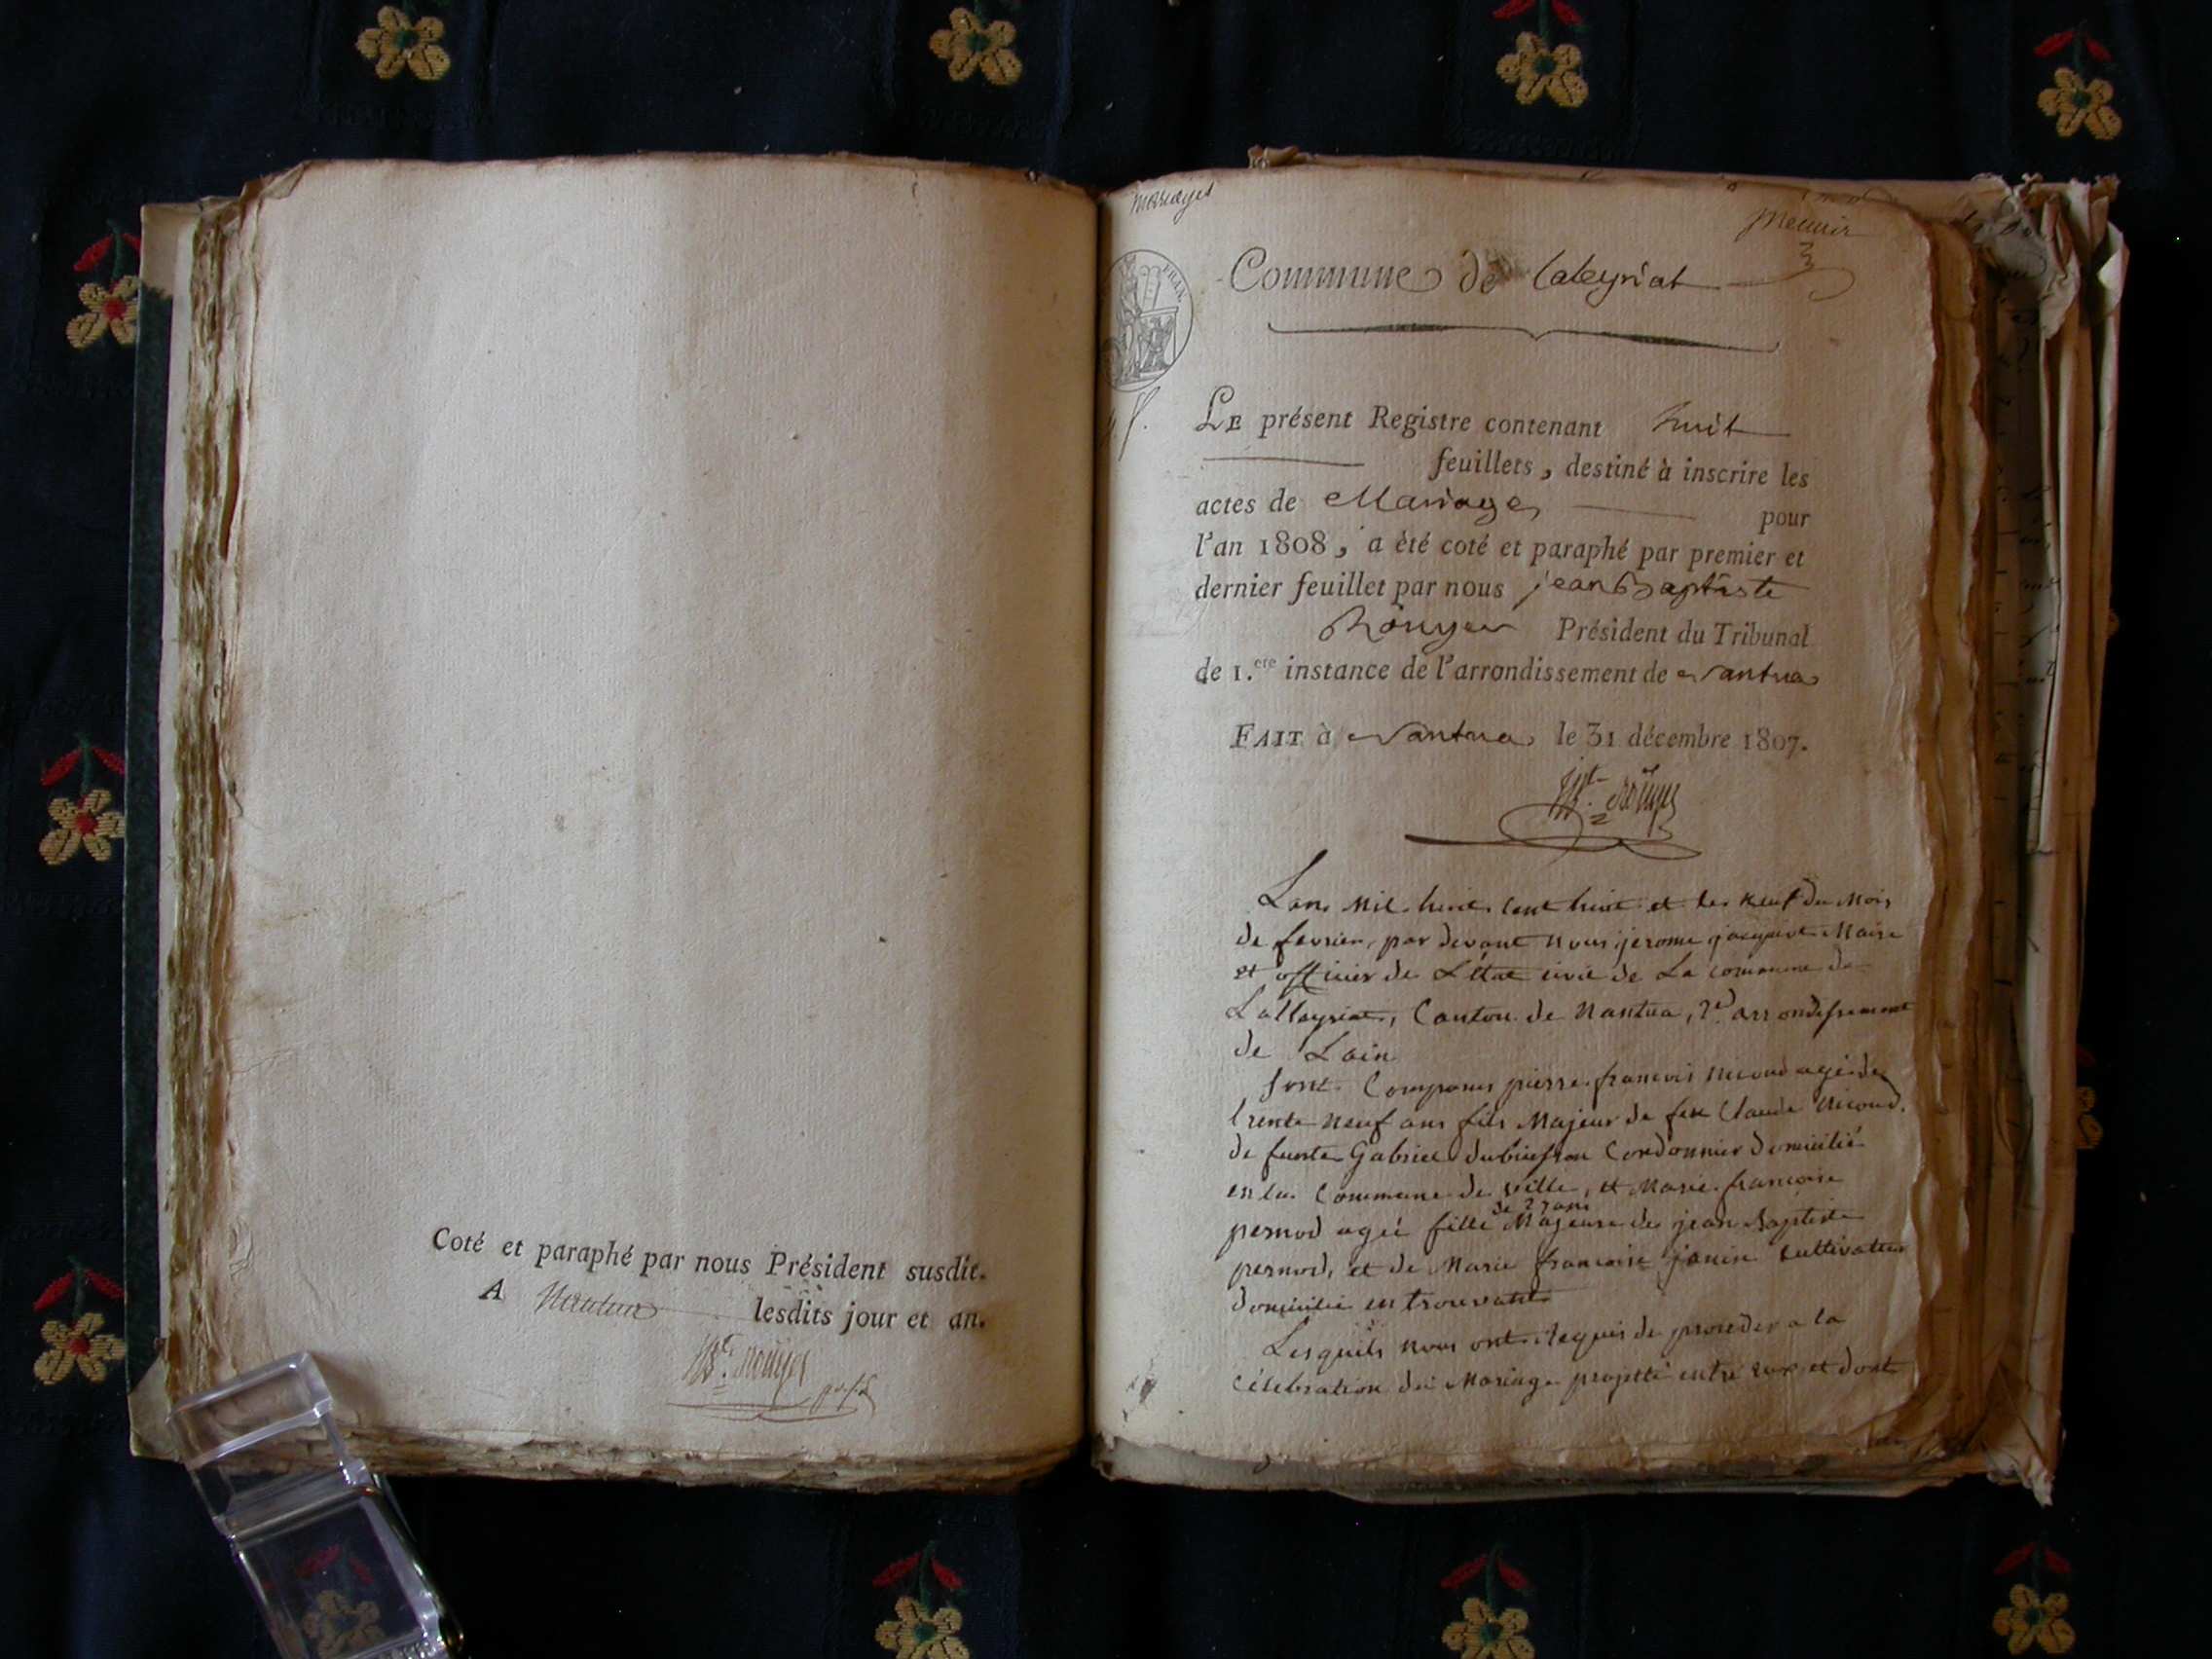 Coté et paraphé par nous Président susdit.
A Nantua lesdits jour et an.
Jn Bte. rouyer
mariages
Commune de Laleyriat
FRAN.
LE présent Registre contenant huit
feuillets, destiné à inscrire les
actes de Mariage, pour
l'an 1808, a été coté et paraphé par premier et
dernier feuillet par nous jean Baptiste
Rouyer Président du Tribunal
de 1.ere instance de l'arrondissement de Nantua
FAIT à Nantua le 31 décembre 1807.
rouyer
Lan mil huit cent huit et le neuf du mois
de fevrier, par devant nous jerome jacquet Maire
et officier de Létat civil de La commune de
Lalleyriat, Canton de Nantua, 2e. arrondissement
de Lain
sont Comparus pierre francois nicoud agé de
trente neuf ans fils Majeur de feu Claude nicoud.
de fuste Gabriel Cordonnier domicilié
en la Commune de ville, et Marie francoise
de 27 ans
pernod agée fille Majeure de jean Baptiste
pernod, et de Marie francoise janin cultivateur
domicilié en trouvant
Lesquels nous ont requis de proceder a la
célebration du Mariage projetté entre eux et dont